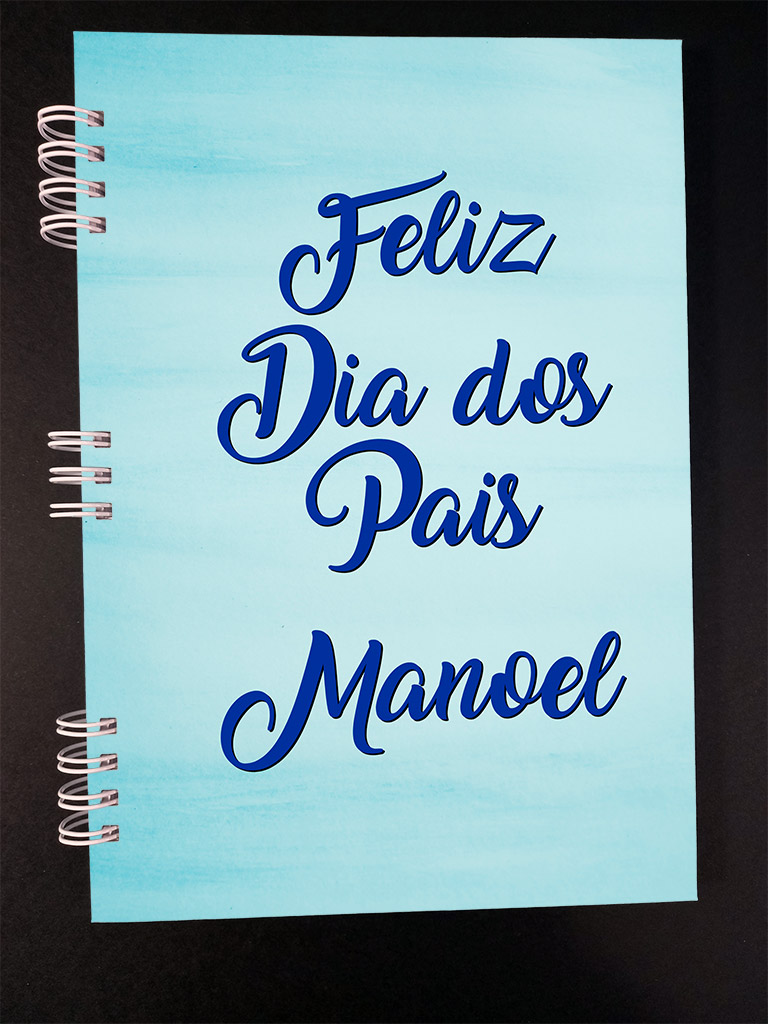 Feliz
Dia dos
Pais
Manoel